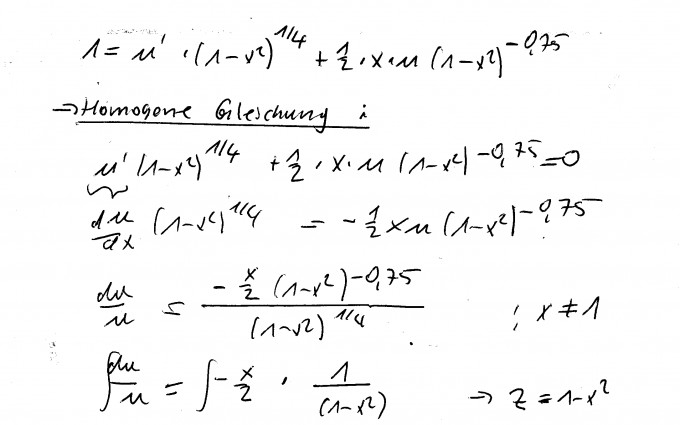 1 = u' · (1-x²)^1/4 + 1/2 · x · u (1-x²)^-0,75
→ Homogene Gleichung :
u' (1-x²)^1/4 + 1/2 · x · u (1-x²)^-0,75 = 0
du/dx (1-x²)^1/4 = - 1/2 x u (1-x²)^-0,75
du/u = (- x/2 (1-x²)^-0,75) / ((1-x²)^1/4) ; x ≠ 1
∫ du/u = ∫ - x/2 · 1/(1-x²) → z = 1-x²